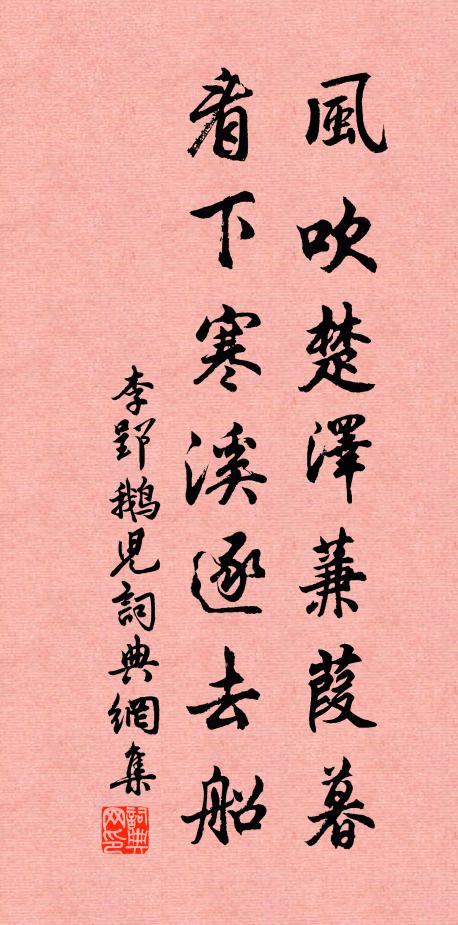 風吹楚澤蒹葭暮
看下寒溪逐去船
李郢鵝兒詞典網集
詞典网印